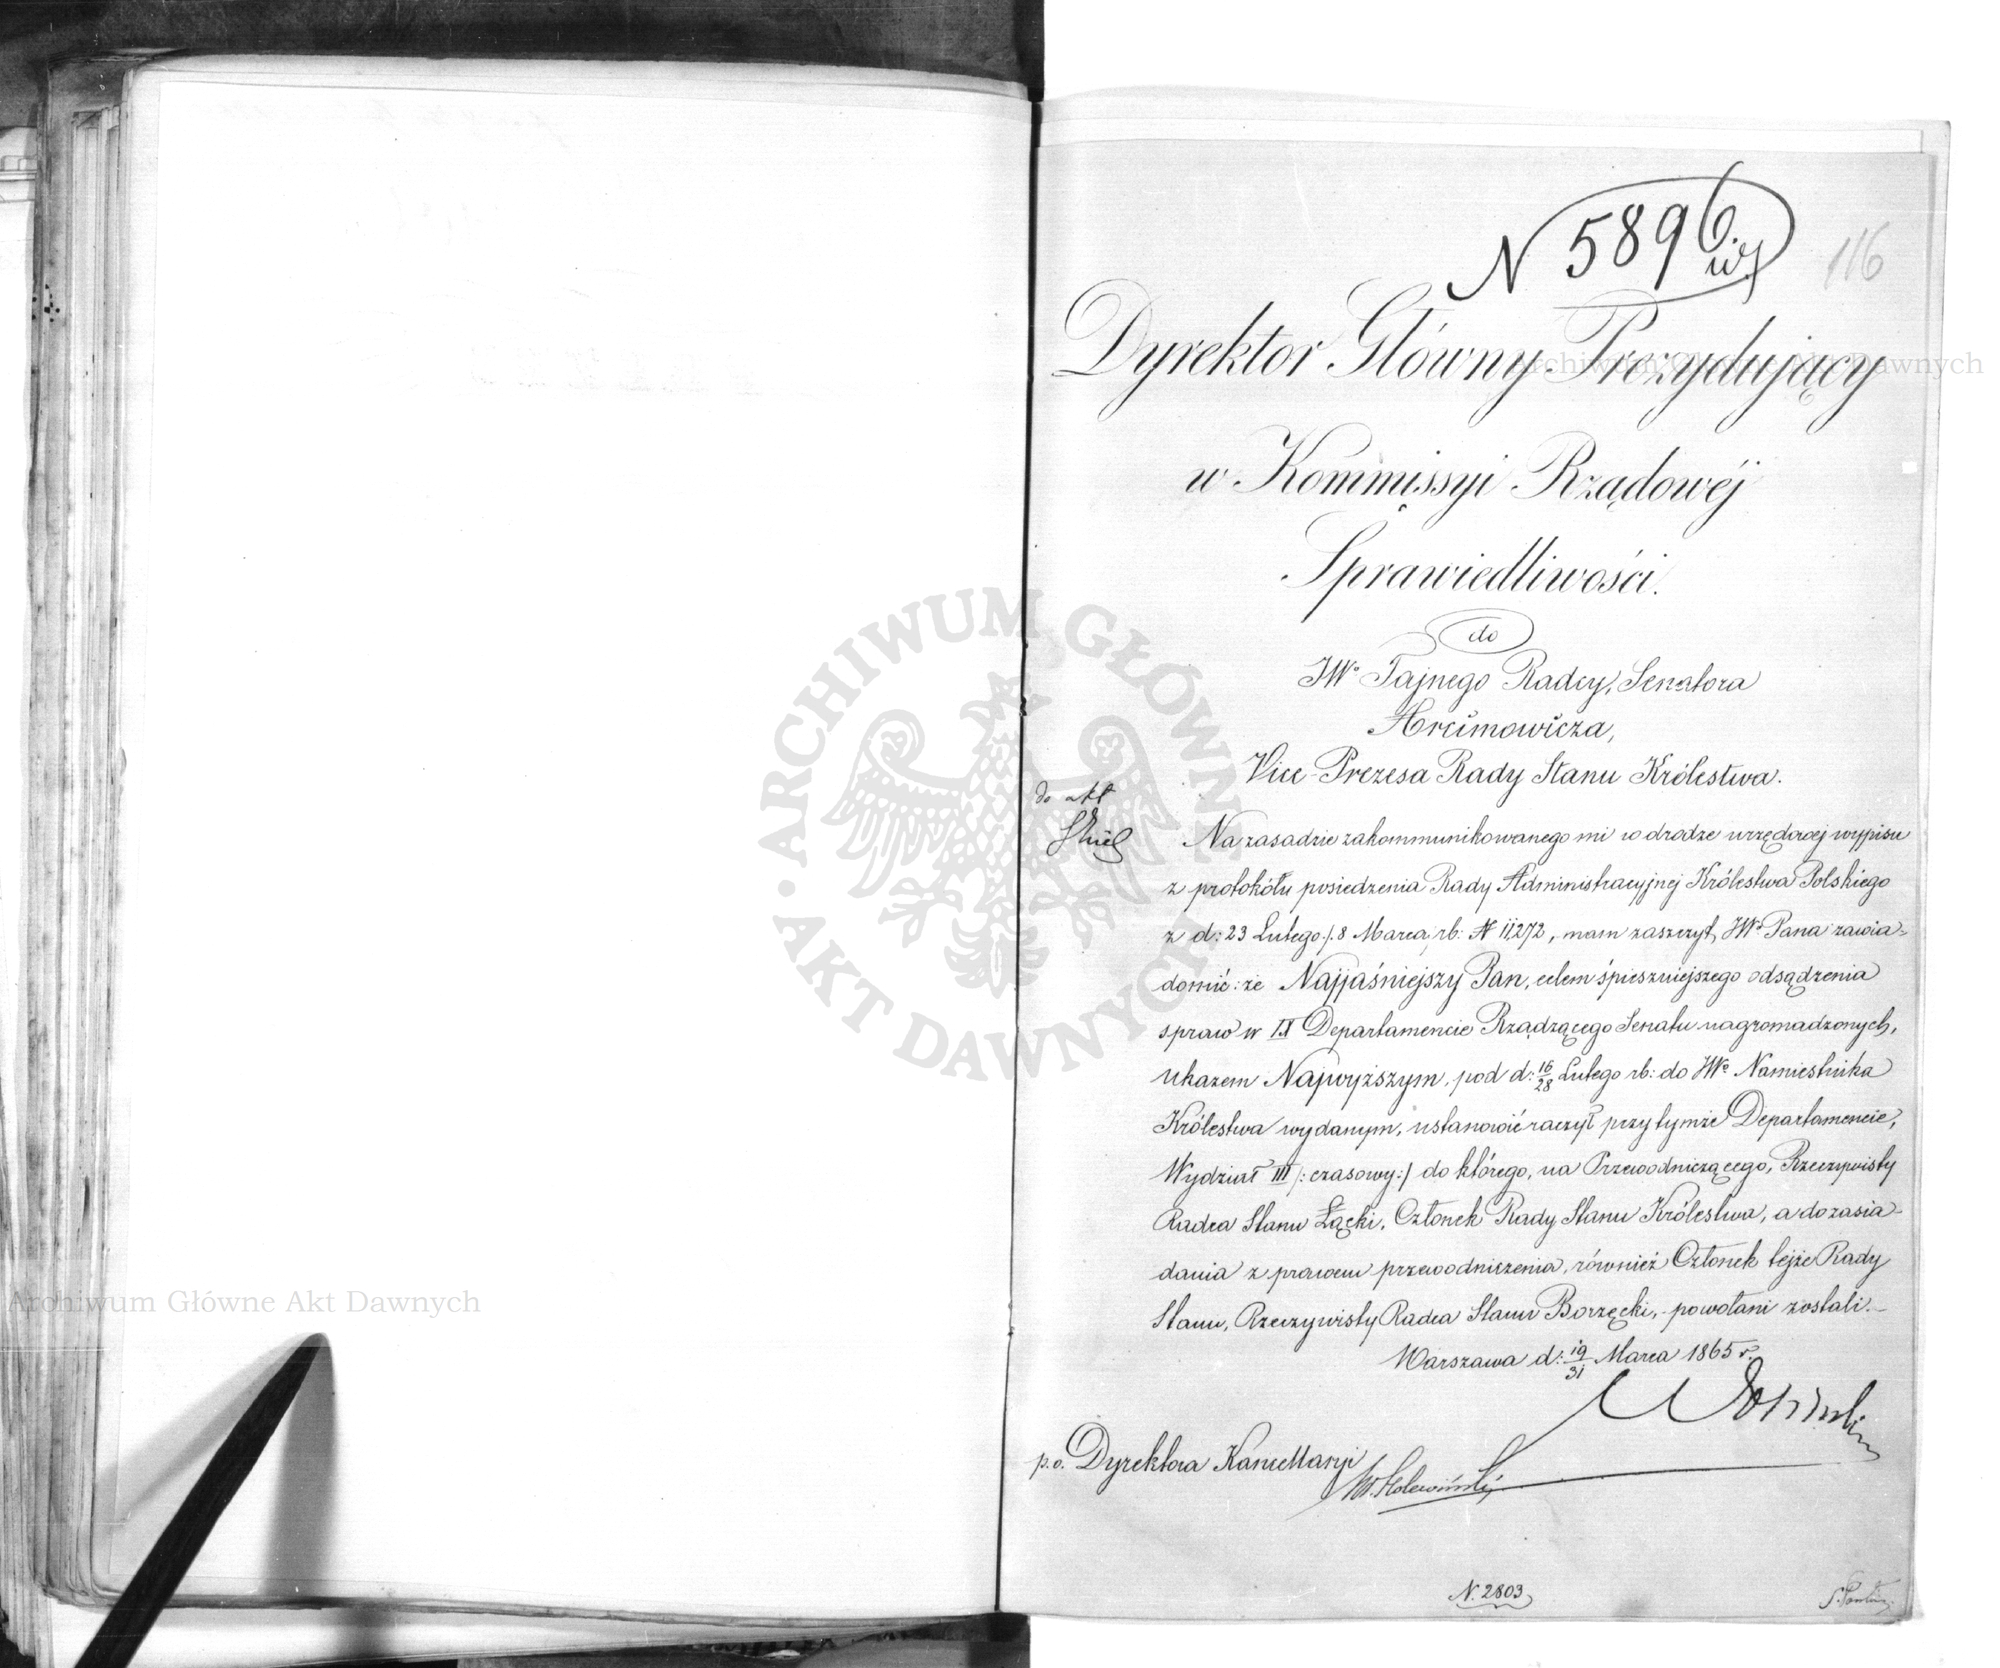 N 5896
116
Dyrektor Główny Prezydujący
w Kommissyi Rządowéj
Sprawiedliwości.
do
JWo Tajnego Radcy, Senatora
Arcimowicza,
Vice-Prezesa Rady Stanu Królestwa.
do akt
Na zasadzie zakommunikowanego mi w drodze urzędowej wypisu
z protokółu posiedzenia Rady Administracyjnej Królestwa Polskiego
z d: 23 Lutego /. 8 Marca, rb: N 11,272, mam zaszczyt, JWo Pana zawia-
domić: że Najjaśniejszy Pan, celem śpieszniejszego odsądzenia
spraw w IX Departamencie Rządzącego Senatu nagromadzonych,
Ukazem Najwyższym, pod d: 16/28 Lutego rb: do JWo Namiestnika
Królestwa wydanym, ustanowić raczył przy tymże Departamencie,
Wydział III /: czasowy :/ do którego, na Przewodniczącego, Rzeczywisty
Radca Stanu Łącki, Członek Rady Stanu Królestwa, a do zasia-
dania z prawem przewodniczenia, również Członek tejże Rady
Stanu, Rzeczywisty Radca Stanu Borzęcki, - powołani zostali. -
Warszawa d: 19/31 Marca 1865 r.
p.o. Dyrektora Kancellaryi
W. Holewiński
N. 2803
Archiwum Główne Akt Dawnych
Archiwum Główne Akt Dawnych
ARCHIWUM GŁÓWNE AKT DAWNYCH